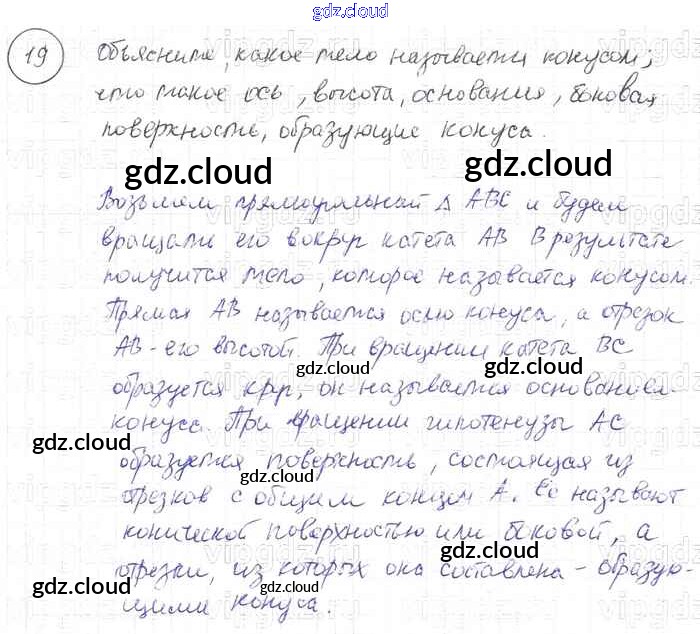 gdz.cloud
19 Объясните, какое тело называется конусом;
что такое ось, высота, основание, боковая
поверхность, образующие конуса.
gdz.cloud gdz.cloud
Возьмем прямоугольный Δ ABC и будем
вращать его вокруг катета AB В результате
получится тело, которое называется конусом.
Прямая AB называется осью конуса, а отрезок
AB - его высотой. При вращении катета BC
gdz.cloud gdz.cloud
образуется круг, он называется основанием
конуса. При вращении гипотенузы AC
gdz.cloud gdz.cloud
образуется поверхность, состоящая из
gdz.cloud
отрезков с общим концом A. Её называют
конической поверхностью или боковой, а
gdz.cloud
отрезки, из которых она составлена - образую-
gdz.cloud gdz.cloud
щими конуса.